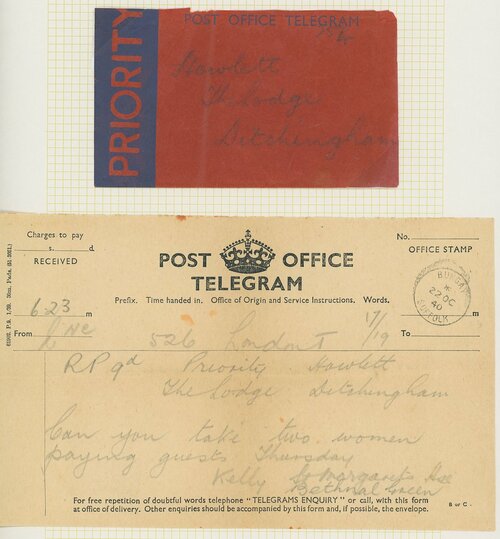 POST OFFICE TELEGRAM
PRIORITY
Howlett
The Lodge
Ditchingham
Charges to pay
s. d.
RECEIVED
POST OFFICE
TELEGRAM
No.
OFFICE STAMP
Prefix. Time handed in. Office of Origin and Service Instructions. Words.
BUNGAY
22 OC
40
SUFFOLK
623 m
17/19
m
From
To
526 London T
RP 9d Priority Howlett
The Lodge Ditchingham
Can you take two women
paying guests Thursday
Kelly St Margarets Hse
Bethnal Green
For free repetition of doubtful words telephone "TELEGRAMS ENQUIRY" or call, with this form
at office of delivery. Other enquiries should be accompanied by this form and, if possible, the envelope.
B or C